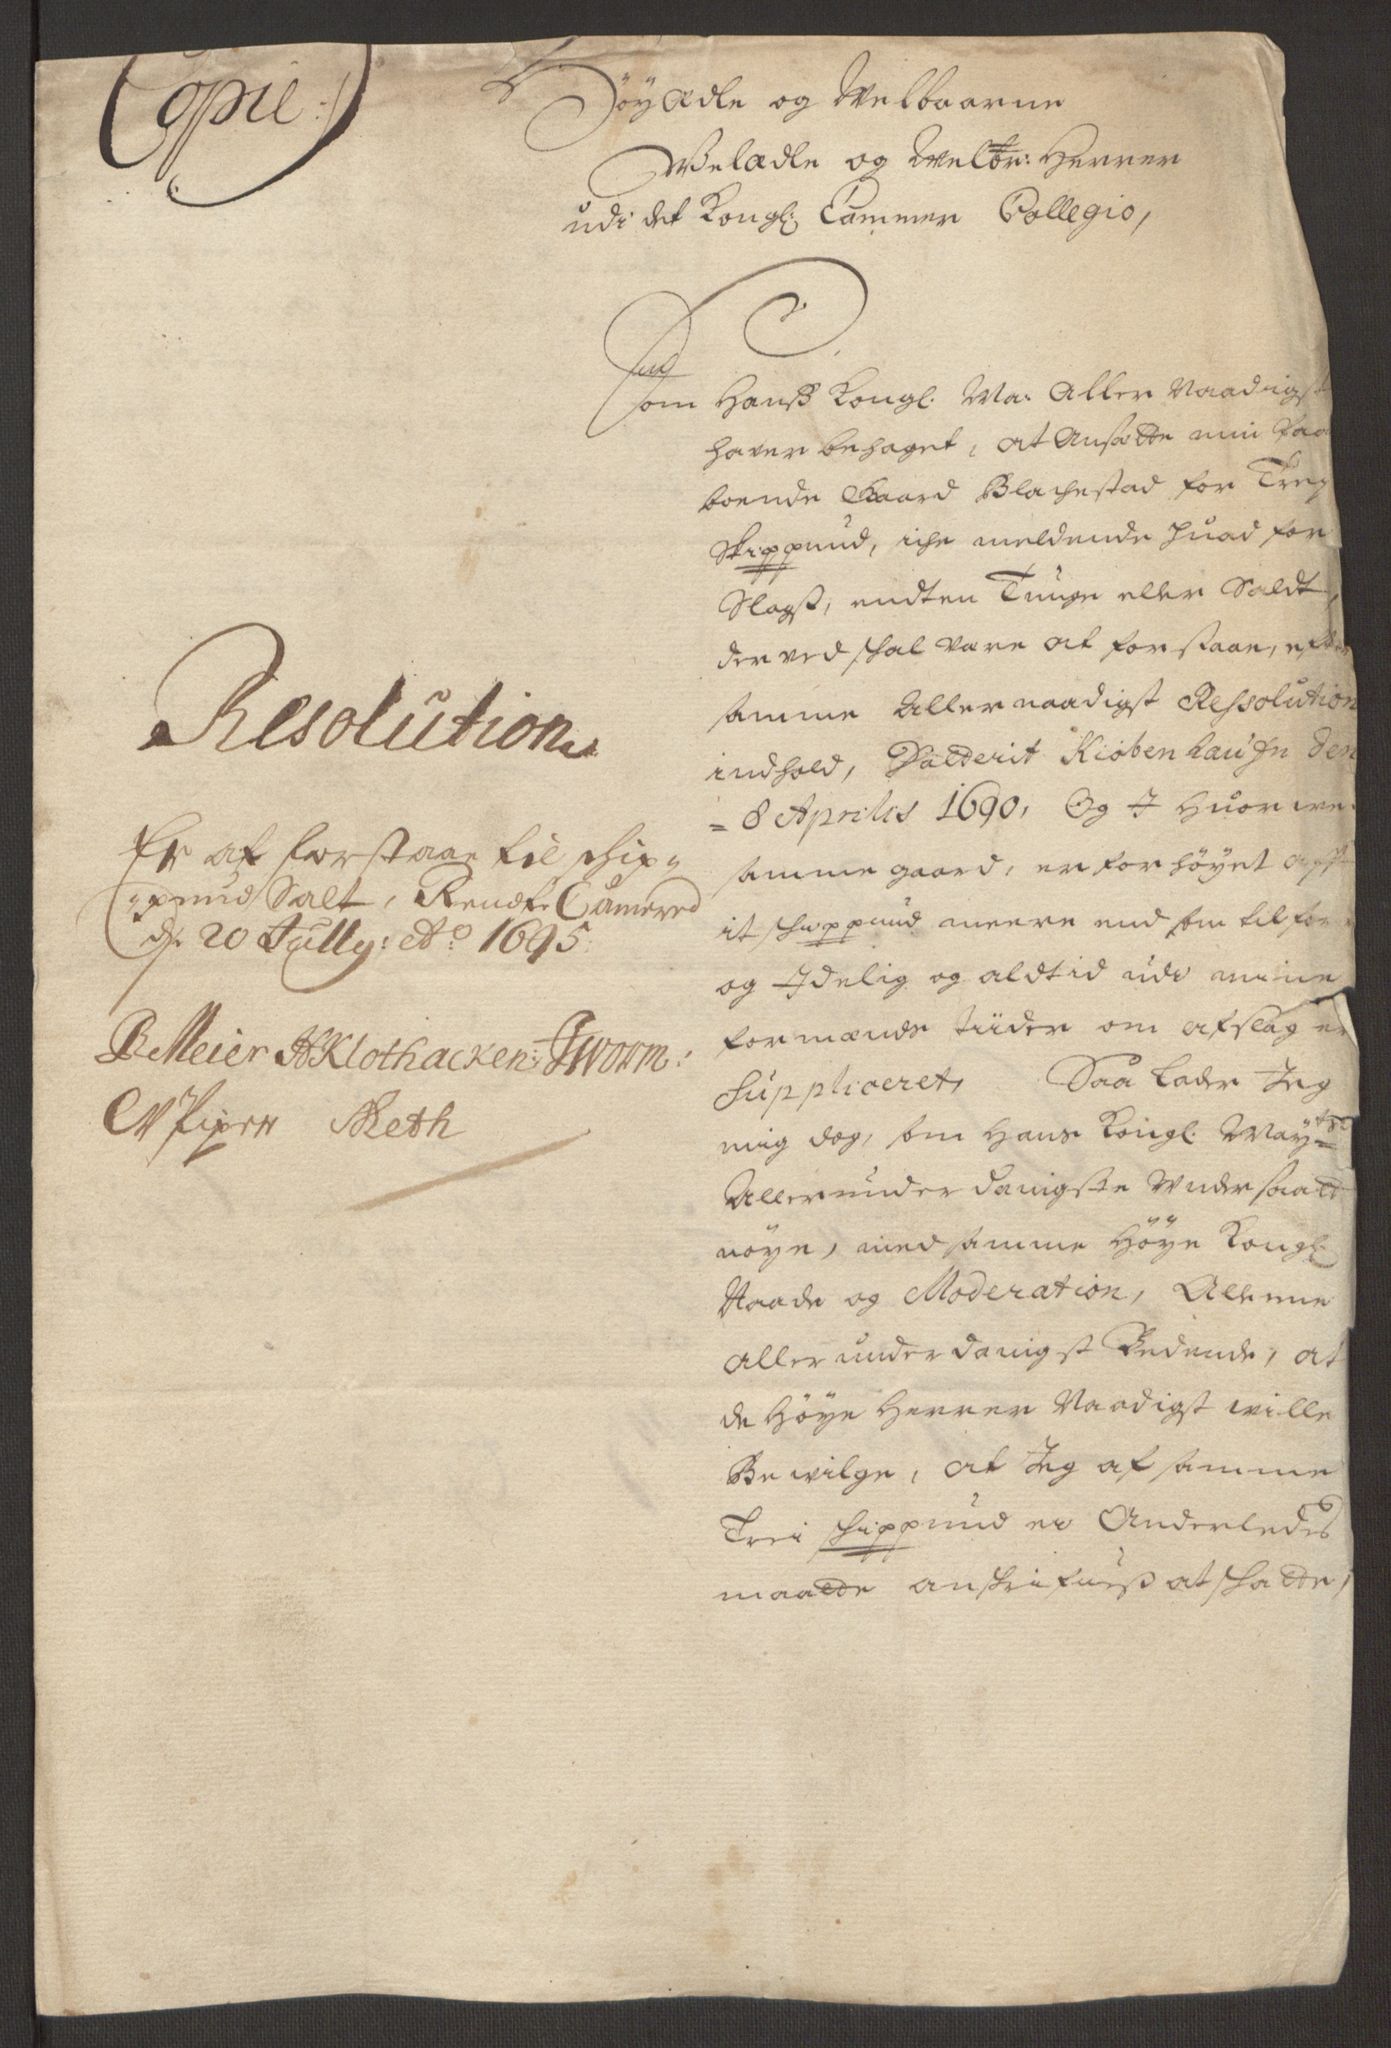 Copie
Höyædle og Welbaarne
Welædle og Welbr: Herrer
udi det Kongl: Cammer Collegio,
Som Hanß Kongl. Ma: Aller Naadigst
haver behaget, at Ansætte min paa
boende Gaard Blachestad for Trej
Skippund, iche meldende huad for
Slagß, endten Tunge eller Saldt,
der ved schal være at forstaae, efter
samme Allernaadigst Ressolution
indhold, Datterit Kiøbenhaufn den
8 Aprilis 1690, Og I Huor we.
samme gaard, er forhöyet
it schippund meere end som tilforn
og Idelig og aldtid udi mine
formænds tiider om afslag er
Suppliceret, Saa lader Jeg
mig dog, som Hans Kongl. Maytz
Allerunderdanigste Undersaatt
nöye, med samme Höye Kongl:
Naade og Moderation, Allene
allerunderdanigst Bedende, at
de Höye Herrer Naadigst wille
Bewilge, at Jeg af samme
Trei schippund ei Anderledes
maatte anskrifuess at schatte,
Resolution
Er at forstaae til schip-
pund Salt, Rendte Cammered
d. 20 Jully: Ao 1695
B Meier H Klothacken: J Worm:
CV Piper Reth